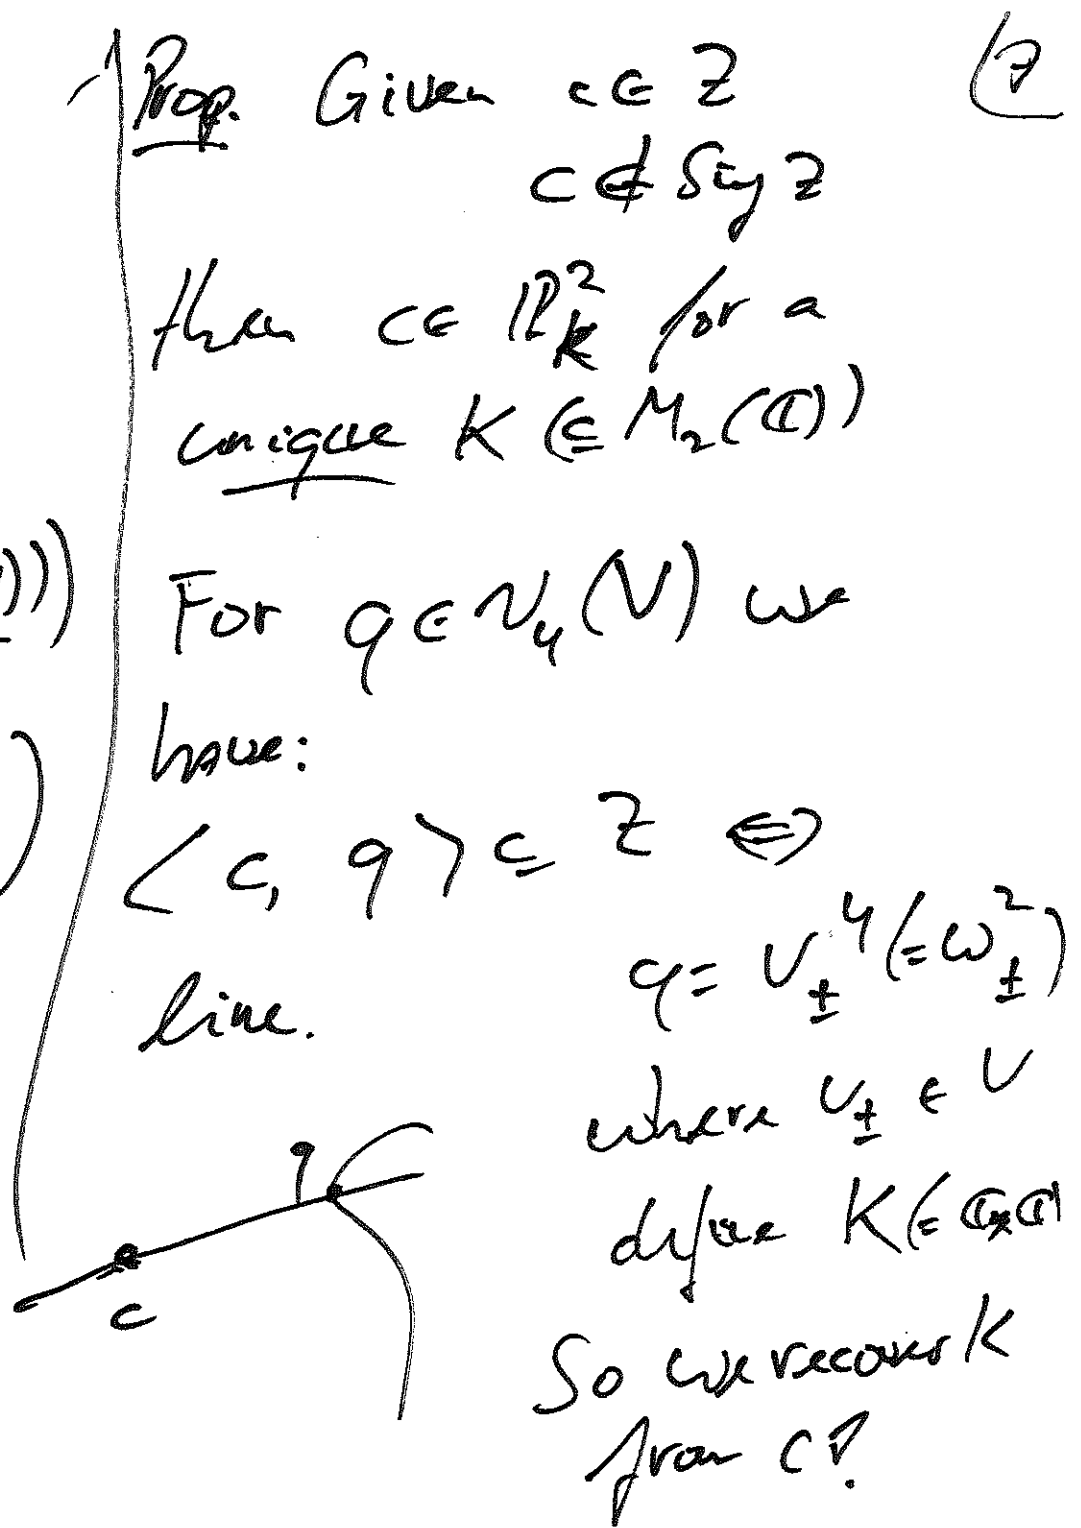 Prop. Given c ∈ Z
7
c ∉ Sing Z
then c ∈ ℙ²_K for a
unique K (⊆ M₂(ℂ))
)))
For q ∈ ν₄(V) we
have:
)
⟨c, q⟩ ⊆ Z ⇔
q = v±⁴ (= ω±²)
line.
where v± ∈ V
define K (= ℂ×ℂ
q
c
So we recover K
from c!